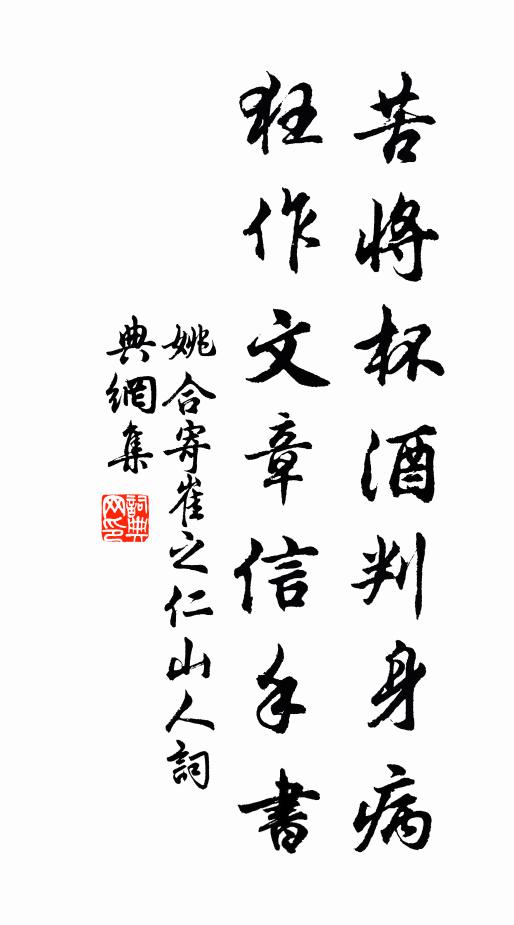 苦將杯酒判身病
狂作文章信手書
姚合寄崔之仁山人詞
典網集
詞典
网印